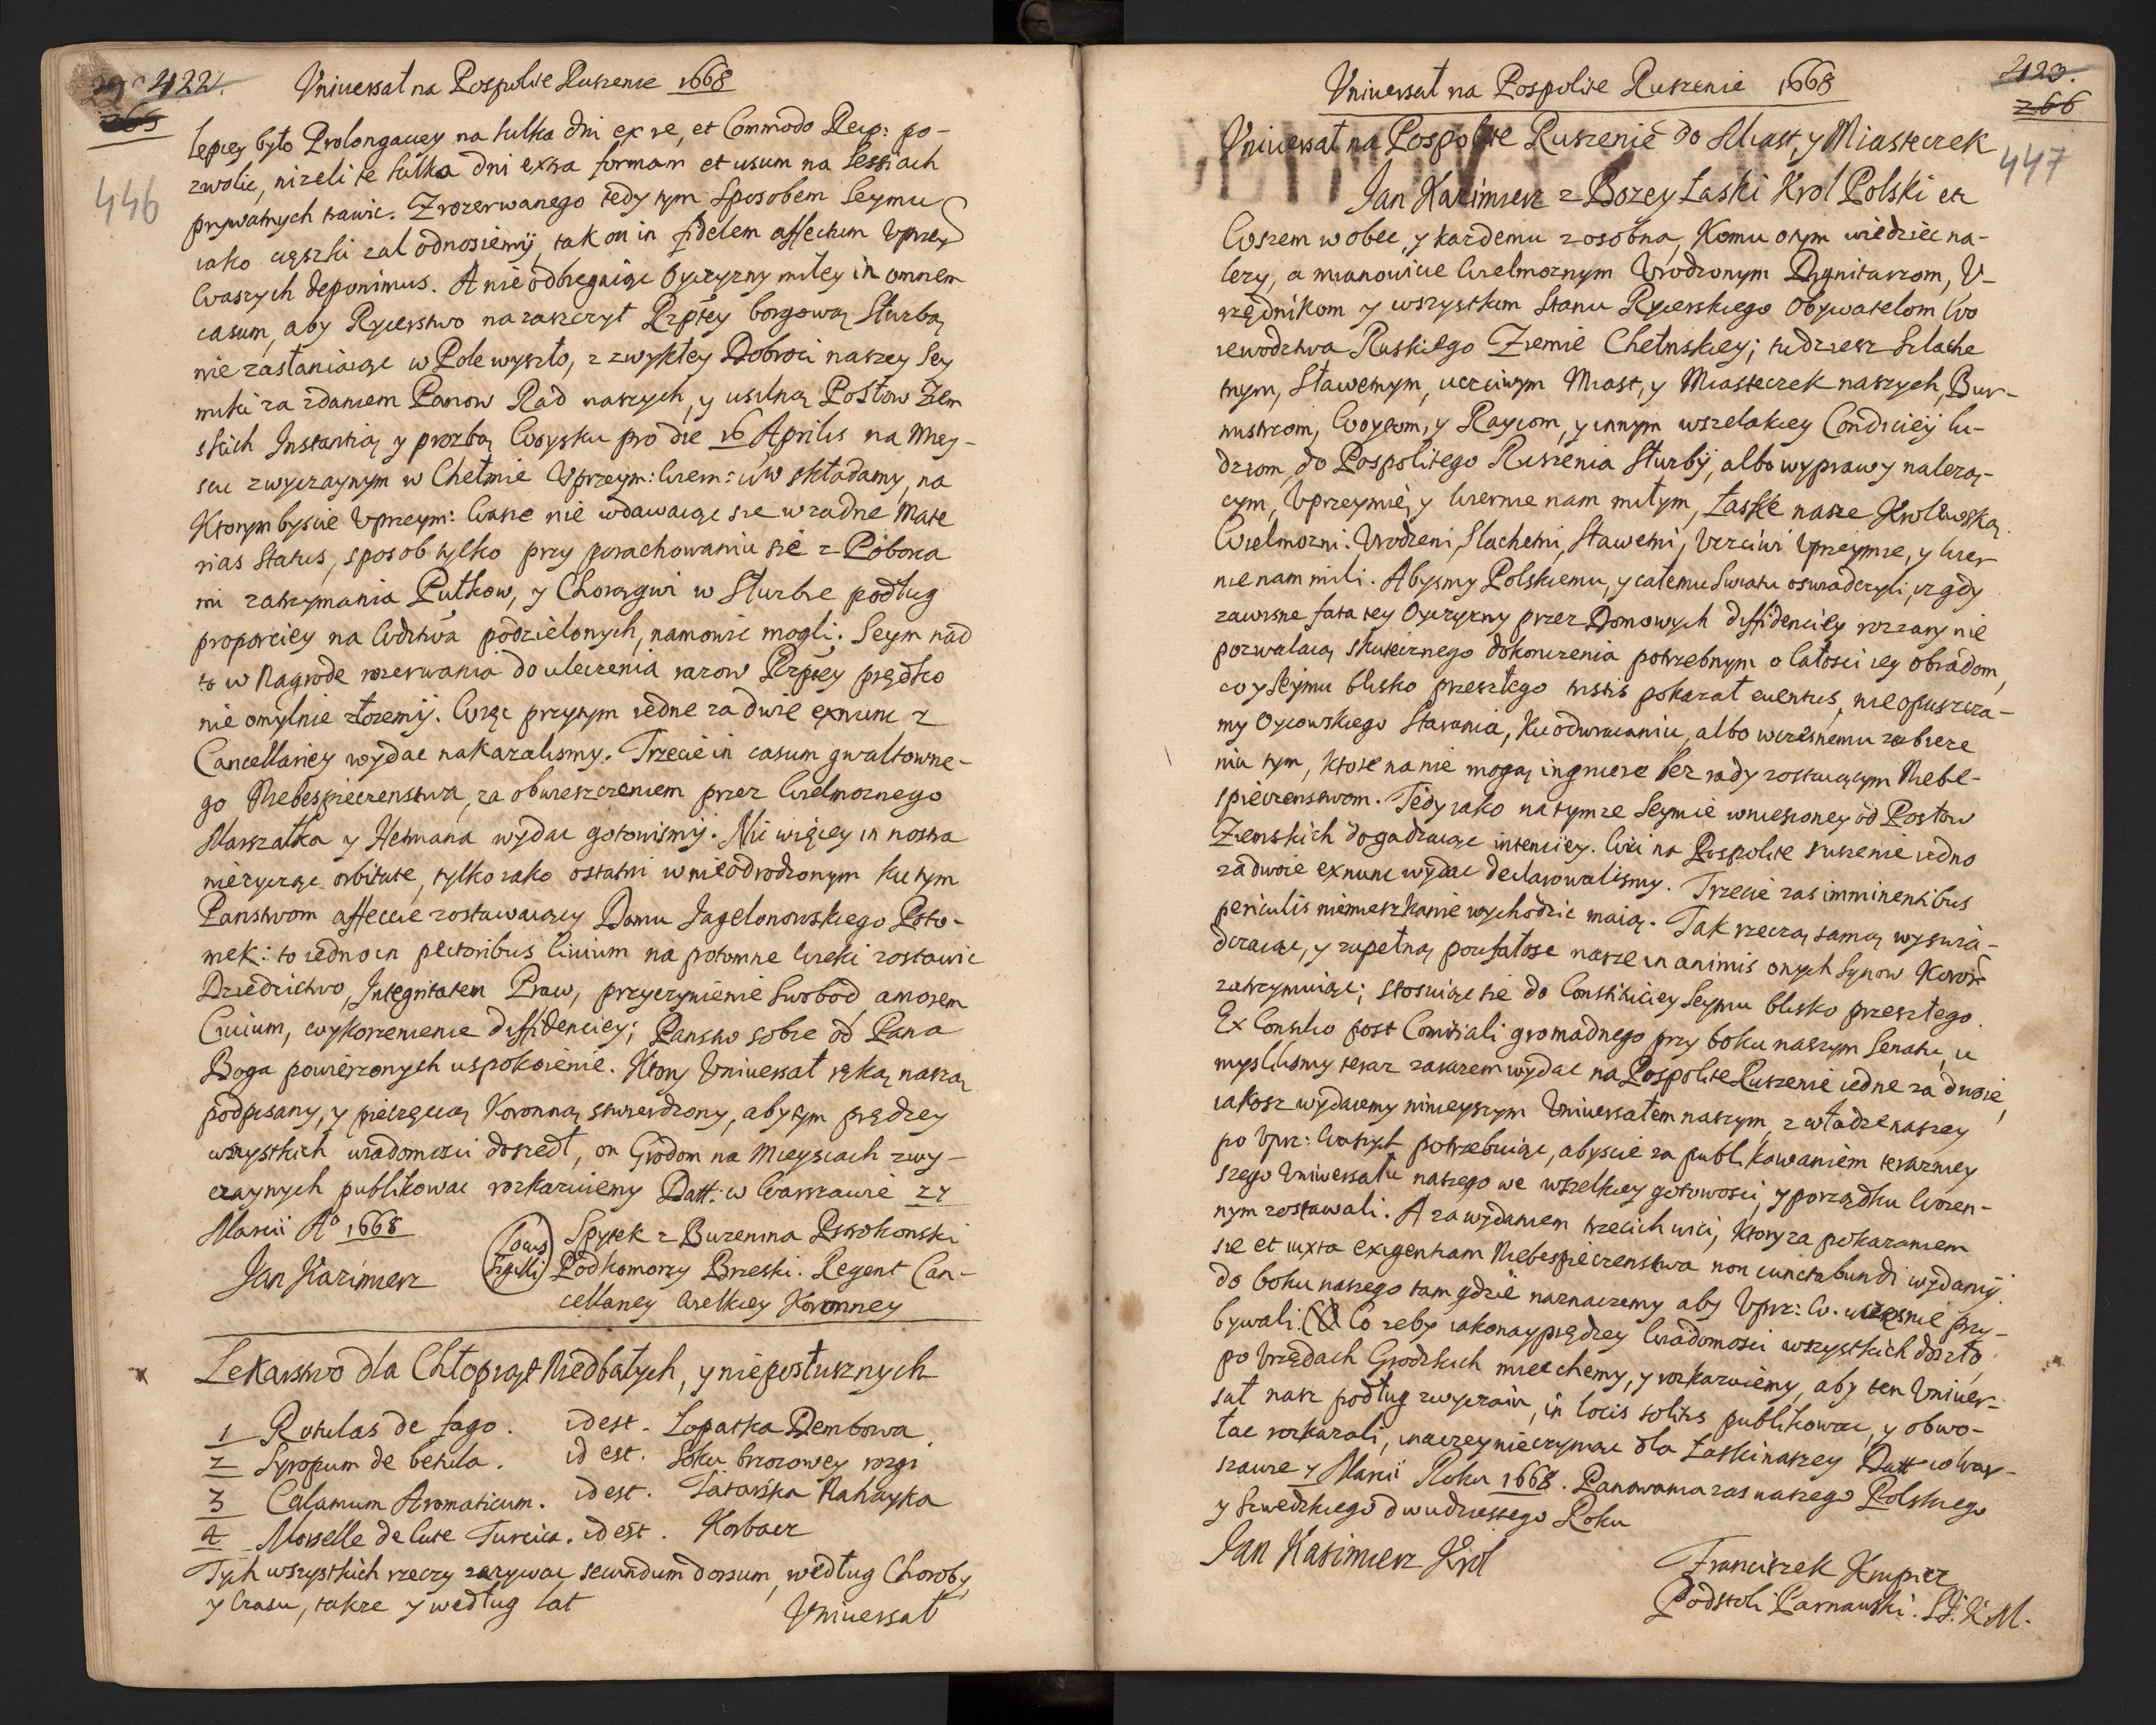 422.
265
446
Uniuersał na Pospolite Ruszenie 1668
Lepiey było Prolongacyey na kilka dni ex re, et Commodo Reip: po-
zwolic, nizeli te kilka dni extra formam et usum na Sessiach
prywatnych trawic. Z rozerwanego tedy tym Sposobem Seymu
iako cięszki zal odnosiemy, tak on in fidelem affectum Uprzey
Waszych deponimus. A nie odbiegaiąc Oyczyzny miłey in omnem
casum, aby Rycerstwo na zaszczyt Rzptey borgową Służbą
nie zasłaniaiąc w Pole wyszło, z zwykłey Dobroci naszey Sey
miki za zdaniem Panow Rad naszych, y usilną Posłow Ziem
skich Instantią y prozbą Woysku pro die 16 Aprilis na Miey-
scu zwyczaynym w Chełmie Uprzeym: Wiern: ciw składamy, na
Ktorym byscie Uprzeym: Wasze nie wdawaiąc sie w zadne Mate
rias Status, sposob tylko przy porachowaniu się z Poborca
mi zatrzymania Pułkow, y Chorągwi w Służbie podług
proporciey na Wdztwa podzielonych, namowic mogli. Seym nad
to w Nagrode rozerwania do uleczenia razow Rzptey prędko
nie omylnie złozemy. Wici przytym iedne za dwie exnunc z
Cancellariey wydac nakazalismy. Trzecie in casum gwałtowne-
go Niebespieczenstwa, za obwieszczeniem przez Wielmoznego
Marszałka y Hetmana wydac gotowismy. Nic więcey in nostra
nie zycząc orbitate, tylko iako ostatni w nieodrodzonym ku tym
Panstwom affeccie zostawaiący Domu Jagelonowskiego Poto-
mek: to iedno in pectoribus Civium na potomne Wieki zostawic
Dziedzictwo, Integritatem Praw, przyczynienie Swobod amorem
Civium, wykorzenienie diffidenciey; Panstw sobie od Pana
Boga powierzonych uspokoienie. Ktory Uniuersał ręką naszą
podpisany, y pieczęcią Koronną stwierdzony, aby tym prędzey
wszystkich wiadomosci doszedł, on Grodom na Mieyscach zwy-
czaynych publikowac rozkazuiemy Datt: w Warszawie 27
Marcii A° 1668
Jan Kazimierz
(Locus Sigilli)
Spytek z Burzenina Pstrokonski
Podkomorzy Brzeski. Regent Can-
cellariey Wielkiey Koronney
Lekarstwo dla Chłopiąt Niedbałych, y nieposłusznych
1 Rotulas de fago. idest. Lopatka Dembowa
2 Syropum de betula. id est. Soku brzozowey rozgi
3 Calamum Aromaticum. idest. Tatarska Nahayka
4 Morselle de Cute Turcica. id est. Korbacz
Tych wszystkich rzeczy zazywac secundum dorsum, według Choroby
y Czasu, takze y według lat
Uniuersał
423.
266
447
Uniuersał na Pospolite Ruszenie 1668
Uniuersał na Pospolite Ruszenie do Miast, y Miasteczek
Jan Kazimierz z Bozey Łaski Krol Polski etc
Wszem wobec, y kazdemu zosobna, Komu o tym wiedziec na-
lezy, a mianowicie Wielmoznym Urodzonym Dignitarzom, U-
rzędnikom y wszystkim Stanu Rycerskiego Obywatelom Wo
iewodztwa Ruskiego Ziemie Chełmskiey; tudziesz Szlache
tnym, Sławetnym, uczciwym Miast, y Miasteczek naszych, Bur-
mistrzom, Woytom, y Raycom, y innym wszelakiey Condiciey lu-
dziom, do Pospolitego Ruszenia Służby, albo wyprawy nalezą-
cym, Uprzeymie, y Wiernie nam miłym, Łaskę nasze Krolewską.
Wielmozni. Urodzeni, Slachetni, Sławetni, Uczciwi Uprzeymie, y Wier
nie nam mili. Abysmy Polskiemu, y całemu Swiatu oswiadczyli, iz gdy
zawisne fata tey Oyczyzny przez Domowych diffidenciy rozzary nie
pozwalaią skutecznego dokonczenia potrzebnym o całosci iey obradom,
co y Seymu blisko przeszłego tristis pokazał euentus, nie opuszcza-
my Oycowskiego Starania, Ku odwracaniu, albo wczesnemu zabieze
niu tym, ktore na nie mogą ingruere bez rady zostaiącym Niebe-
spieczenstwom. Tedy iako na tymze Seymie wniesioney od Posłow
Ziemskich dogadzaiąc intenciey. Wici na Pospolite ruszenie iedno
za dwoie exnunc wydac declarowalismy. Trzecie zas imminentibus
periculis niemieszkanie wychodzic maią. Tak rzeczą samą wyswia-
dczaiąc, y zupełną poufałosc nasze in animis onych Synow Koron
zatrzymuiąc; stosuiąc sie do Constituciey Seymu blisko przeszłego.
Ex Consilio post Comitiali gromadnego przy boku naszym Senatu, u
myslilismy teraz zarazem wydac na Pospolite Ruszenie iedne za dwoie,
iakosz wydaiemy ninieyszym Uniuersałem naszym, z władze naszey
po Uprz: Waszych potrzebuiąc, abyscie za publikowaniem terazniey
szego Uniwersału naszego we wszelkiey gotowosci, y porządku Woien-
nym zostawali. A za wydaniem trzecich wici, Ktory za pokazaniem
sie et iuxta exigentiam Niebespieczenstwa non cunctabundi wydamy.
do boku naszego tam gdzie naznaczemy aby Uprz: W. wczesnie przy-
bywali. Co zeby iakonayprędzey Wiadomosci wszystkich doszło,
po Urzędach Grodzkich miec chcemy, y rozkazuiemy, aby ten Uniuer-
sał nasz podług zwyczaiu, in locis solitis publikowac, y obwo-
łac rozkazali, inaczey nieczyniąc dla Łaski naszey Datt w War-
szawie 7 Marcii Roku 1668. Panowania zas naszego Polskiego
y Szwedzkiego dwudziestego Roku
Jan Kazimierz Krol
Franciszek Krupicz
Podstoli Parnawski. S. J. K. M.